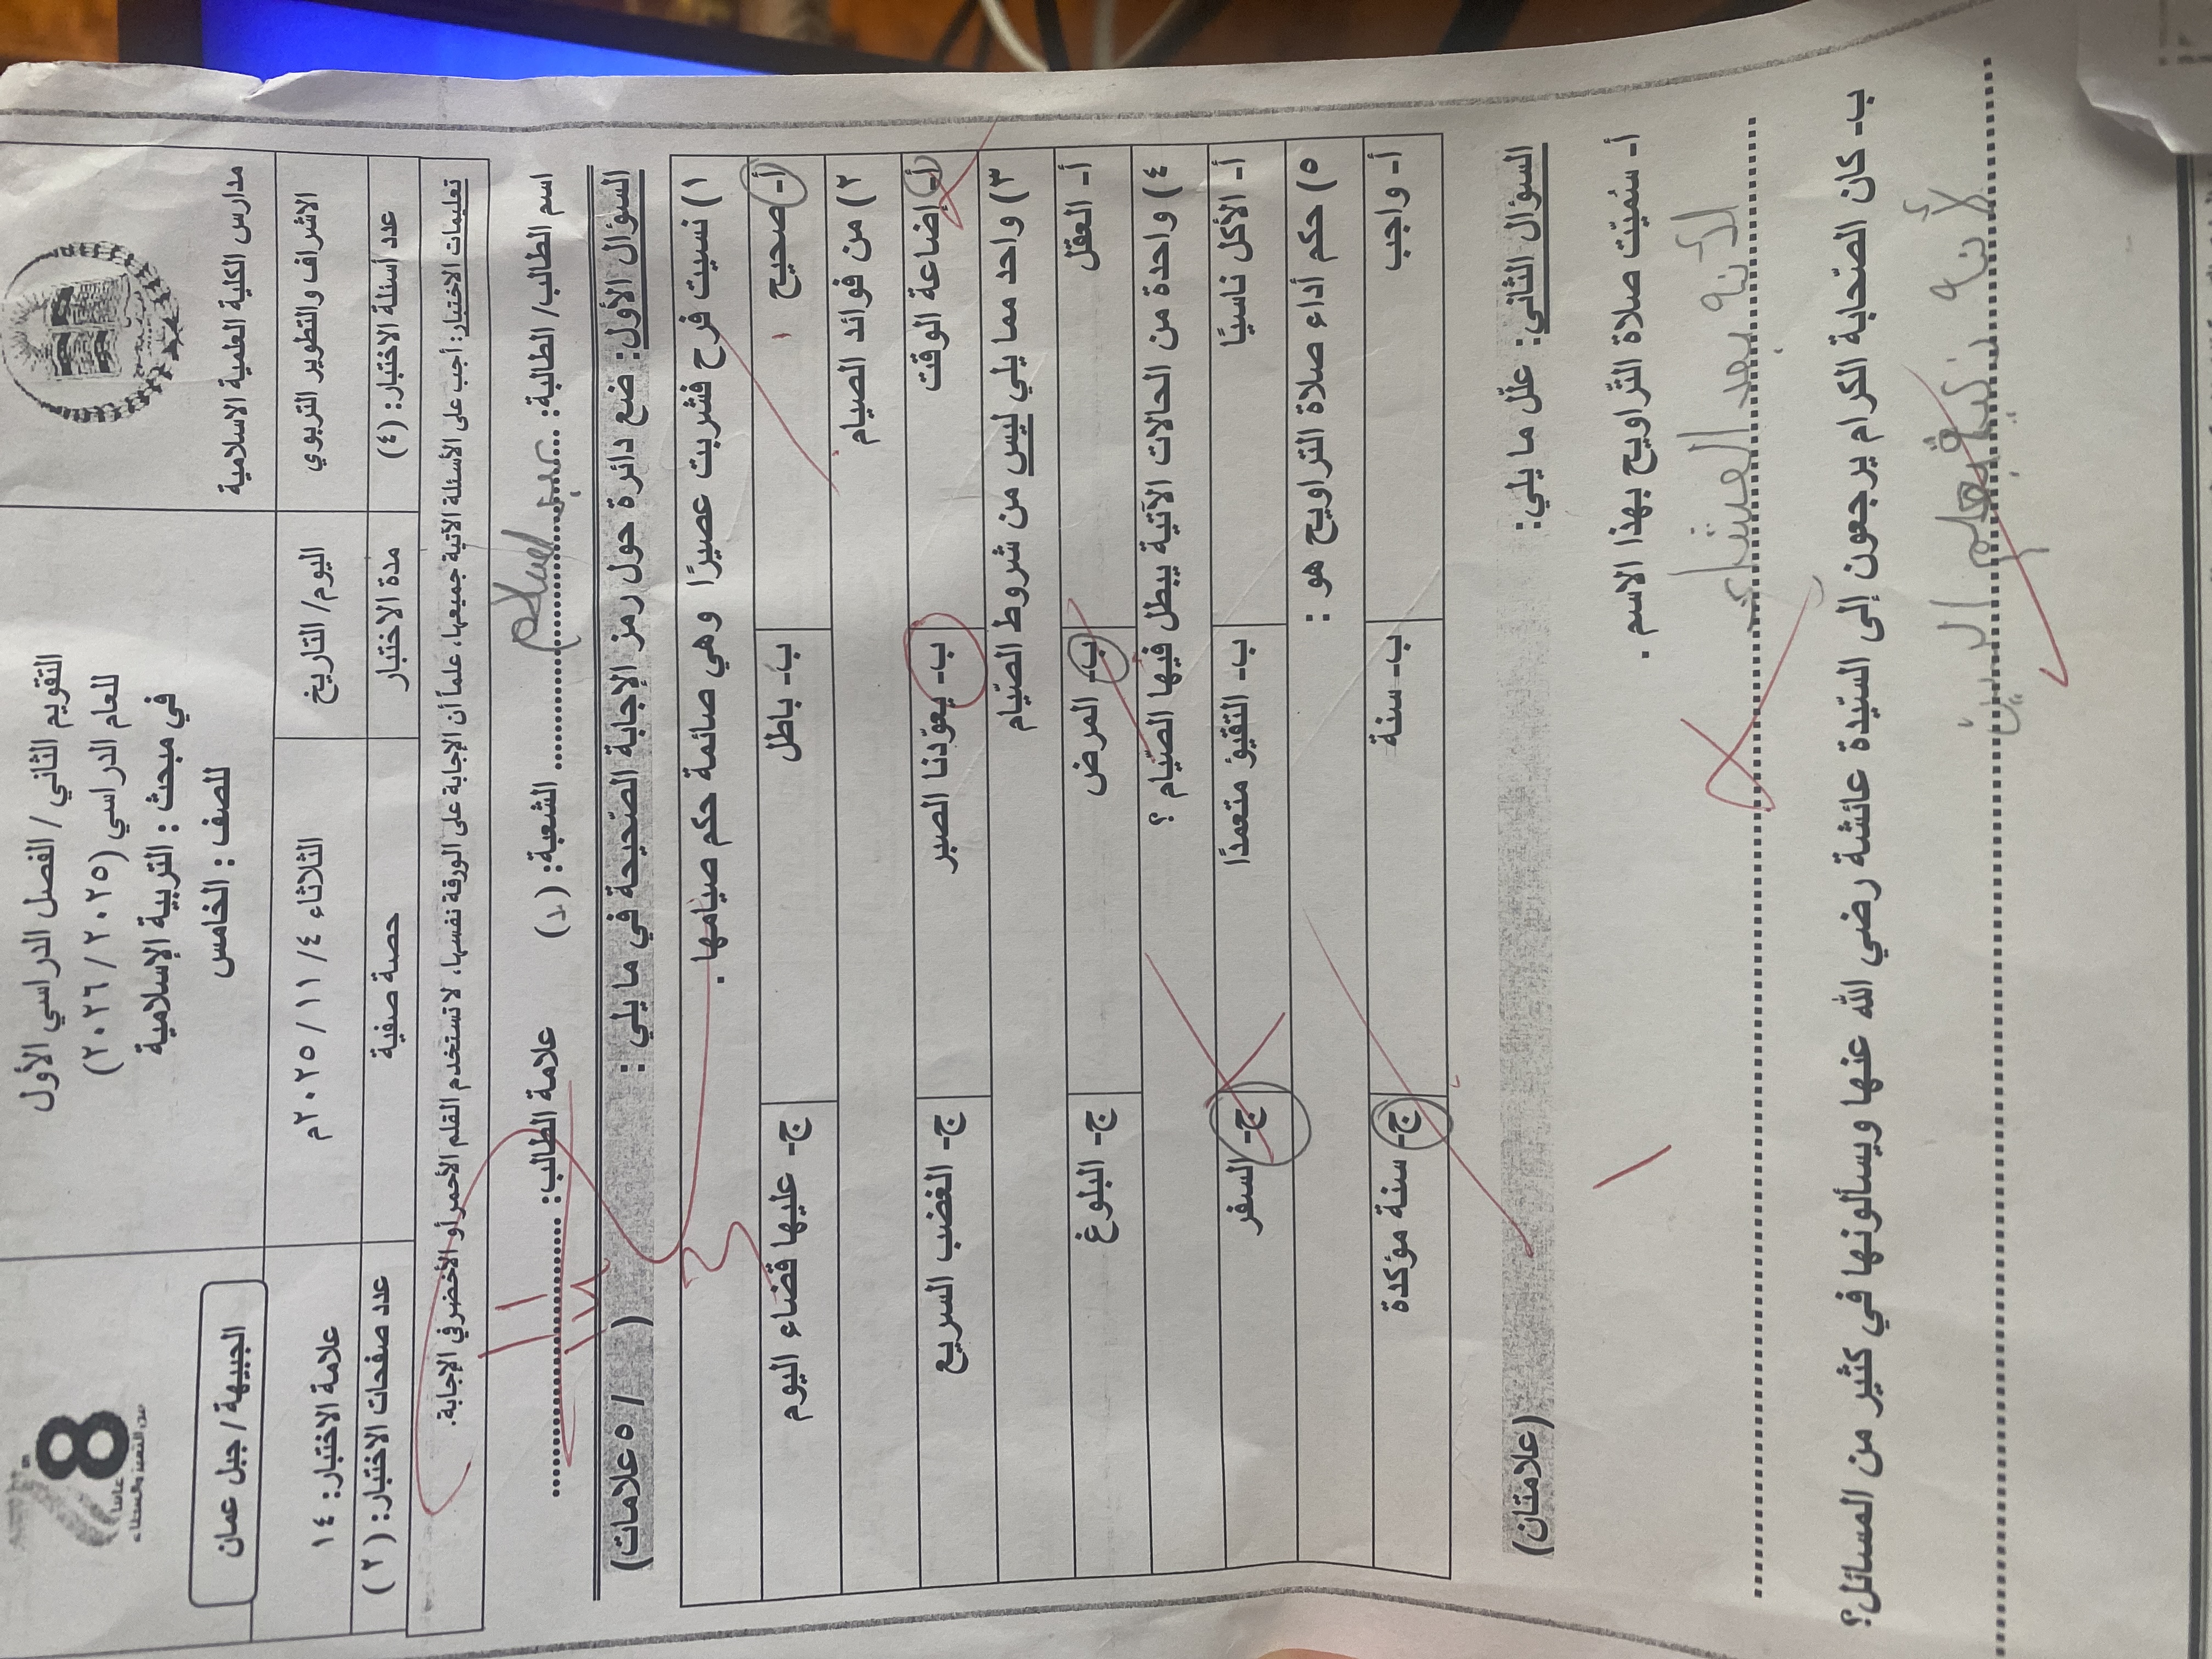 مدارس الكلية العلمية الاسلامية
التقويم الثاني / الفصل الدراسي الأول
للعام الدراسي (٢٠٢٥ / ٢٠٢٦)
في مبحث : التربية الإسلامية
للصف : الخامس
8
الجبيهة / جبل عمان
الاشراف والتطوير التربوي
اليوم/ التاريخ
الثلاثاء ٤ / ١١ / ٢٠٢٥م
علامة الاختبار: ١٤
عدد أسئلة الاختبار: (٤)
مدة الاختبار
حصة صفية
عدد صفحات الاختبار: (٢)
تعليمات الاختبار: أجب على الأسئلة الآتية جميعها، علماً أن الإجابة على الورقة نفسها، لا تستخدم القلم الأحمر أو الأخضر في الإجابة.
اسم الطالب/ الطالبة: الشعبة: ( ) علامة الطالب:
١١
السؤال الأول: ضع دائرة حول رمز الإجابة الصّحيحة في ما يلي : ( / ٥ علامات)
١) نسيت فرح فشربت عصيرًا وهي صائمة حكم صيامها .
أ- صحيح
ب- باطل
ج- عليها قضاء اليوم
٢) من فوائد الصيام
أ- إضاعة الوقت
ب- يعوّدنا الصبر
ج- الغضب السريع
٣) واحد مما يلي ليس من شروط الصّيام
أ- العقل
ب- المرض
ج- البلوغ
٤) واحدة من الحالات الآتية يبطل فيها الصّيام ؟
أ- الأكل ناسيًا
ب- التقيؤ متعمدًا
ج- السفر
٥) حكم أداء صلاة التراويح هو :
أ- واجب
ب- سنة
ج- سنة مؤكدة
السؤال الثاني: علّل ما يلي: (علامتان)
١
أ- سُميّت صلاة التّراويح بهذا الاسم .
لأنه بعد العشاء
ب- كان الصّحابة الكرام يرجعون إلى السّيدة عائشة رضي الله عنها ويسألونها في كثير من المسائل؟
لأنه